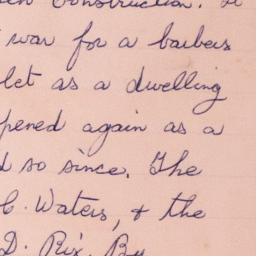 construction. It
war for a barbers
let as a dwelling
pened again as a
d so since. The
C. Waters, & the
D. Rix. By